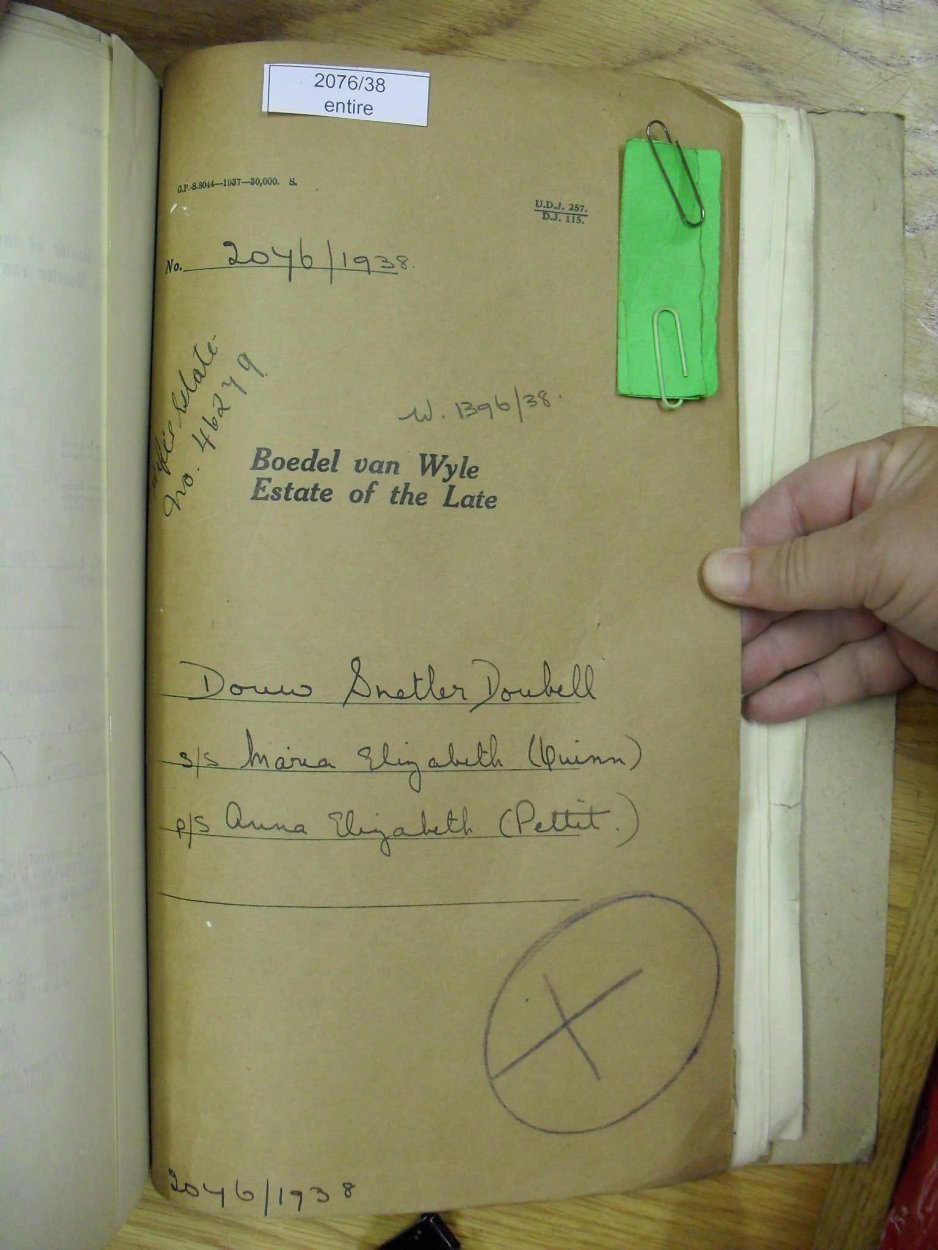 2076/38
entire
G.P.-S.8044—1937—30,000. S.
U.D.J. 257.
D.J. 115.
No. 2076/1938.
Estate
No. 46279
W. 1396/38.
Boedel van Wyle
Estate of the Late
Douw Snetler Doubell
s/s Maria Elizabeth (Quinn)
p/s Anna Elizabeth (Pettit.)
2076/1938